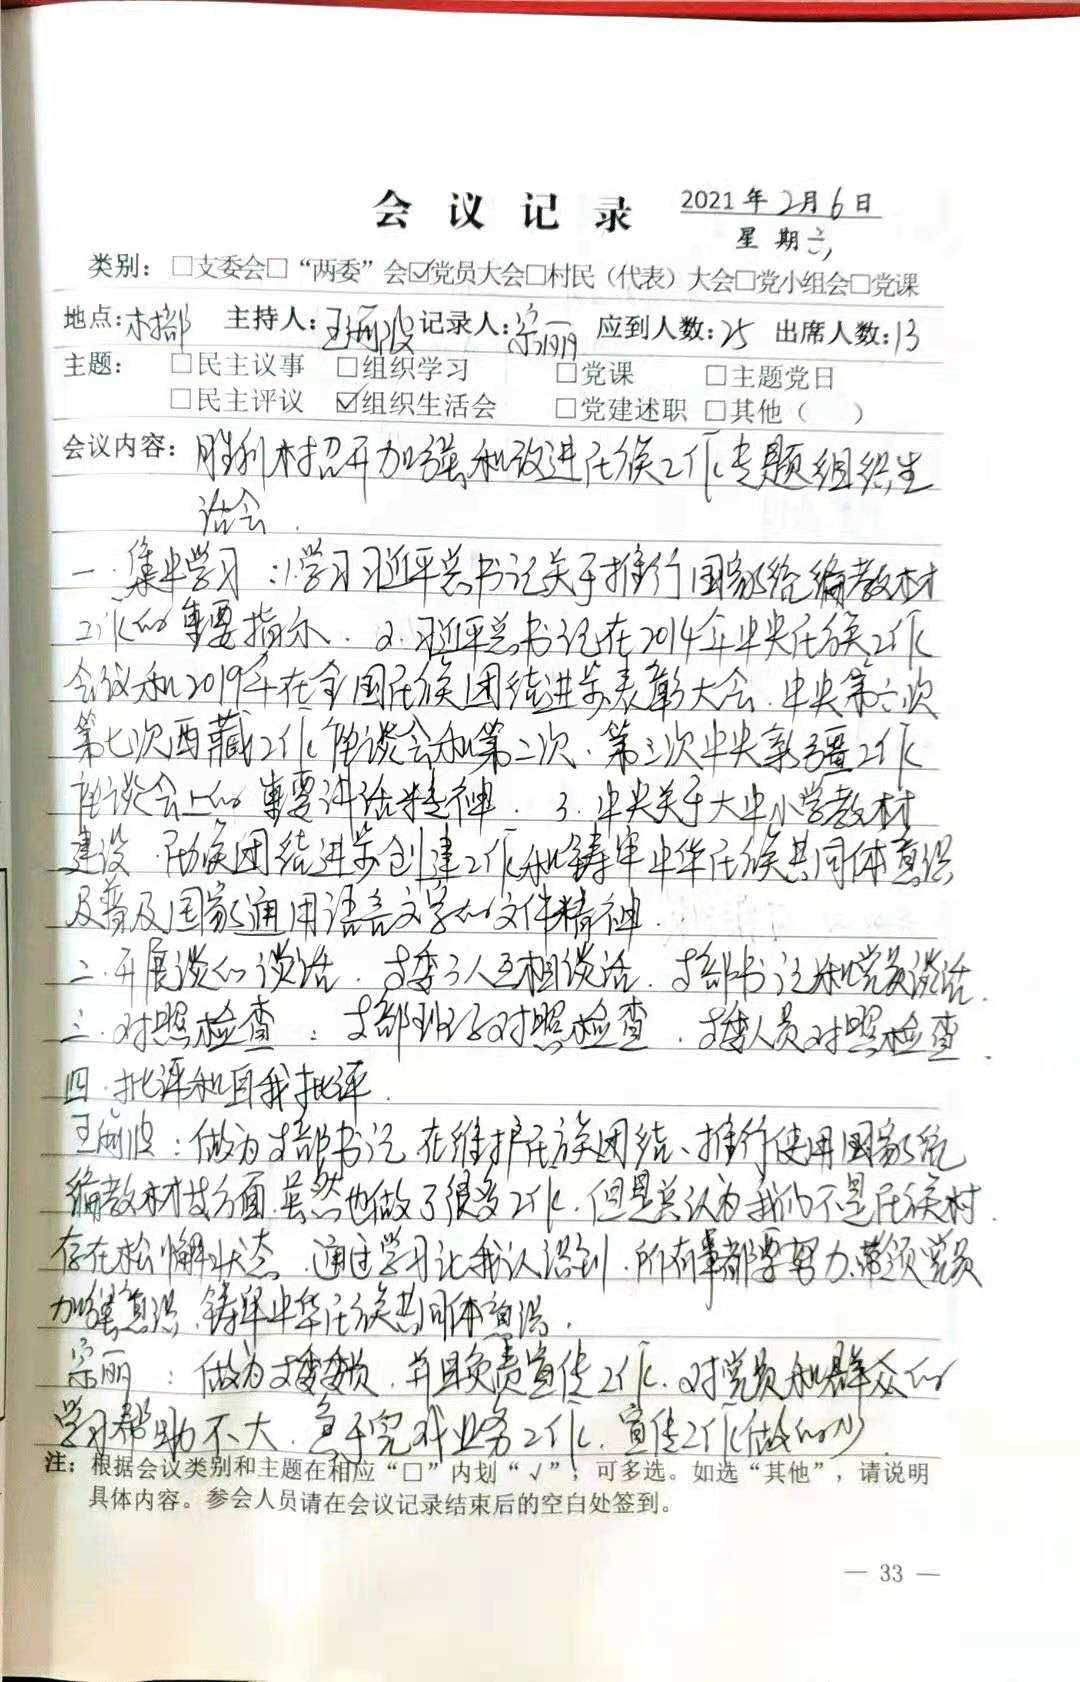 会议记录 2021年2月6日
星期六
类别：□支委会□“两委”会☑党员大会□村民（代表）大会□党小组会□党课
地点：村部 主持人：王 波 记录人：宗丽 应到人数：25 出席人数：13
主题：□民主议事 □组织学习 □党课 □主题党日
□民主评议 ☑组织生活会 □党建述职 □其他（ ）
会议内容：胜利村招开加强和改进民族工作专题组织生
活会.
一.集中学习：1.学习习近平总书记关于推行国家统编教材
工作的重要指示.2.习近平总书记在2014年中央民族工作
会议和2019年在全国民族团结进步表彰大会.中央第六次
第七次西藏工作座谈会和第二次、第三次中央新疆工作
座谈会上的重要讲话精神.3.中央关于大中小学教材
建设.民族团结进步创建工作和铸牢中华民族共同体意识
及普及国家通用语言文字的文件精神.
二.开展谈心谈话.支委3人互相谈话.支部书记和党员谈话.
三.对照检查：支部班子对照检查.支委人员对照检查.
四.批评和自我批评.
王 波：做为支部书记.在维护民族团结、推行使用国家统
编教材方面.虽然也做了很多工作.但是总认为我们不是民族村.
存在松懈状态.通过学习让我认识到.所有事都要努力.带领党员
加强意识.铸牢中华民族共同体意识.
宗丽：做为支委委员.并且负责宣传工作.对党员和群众的
学习帮助不大.急于完成业务工作.宣传工作做的少.
注：根据会议类别和主题在相应“□”内划“√”；可多选。如选“其他”，请说明
具体内容。参会人员请在会议记录结束后的空白处签到。
— 33 —